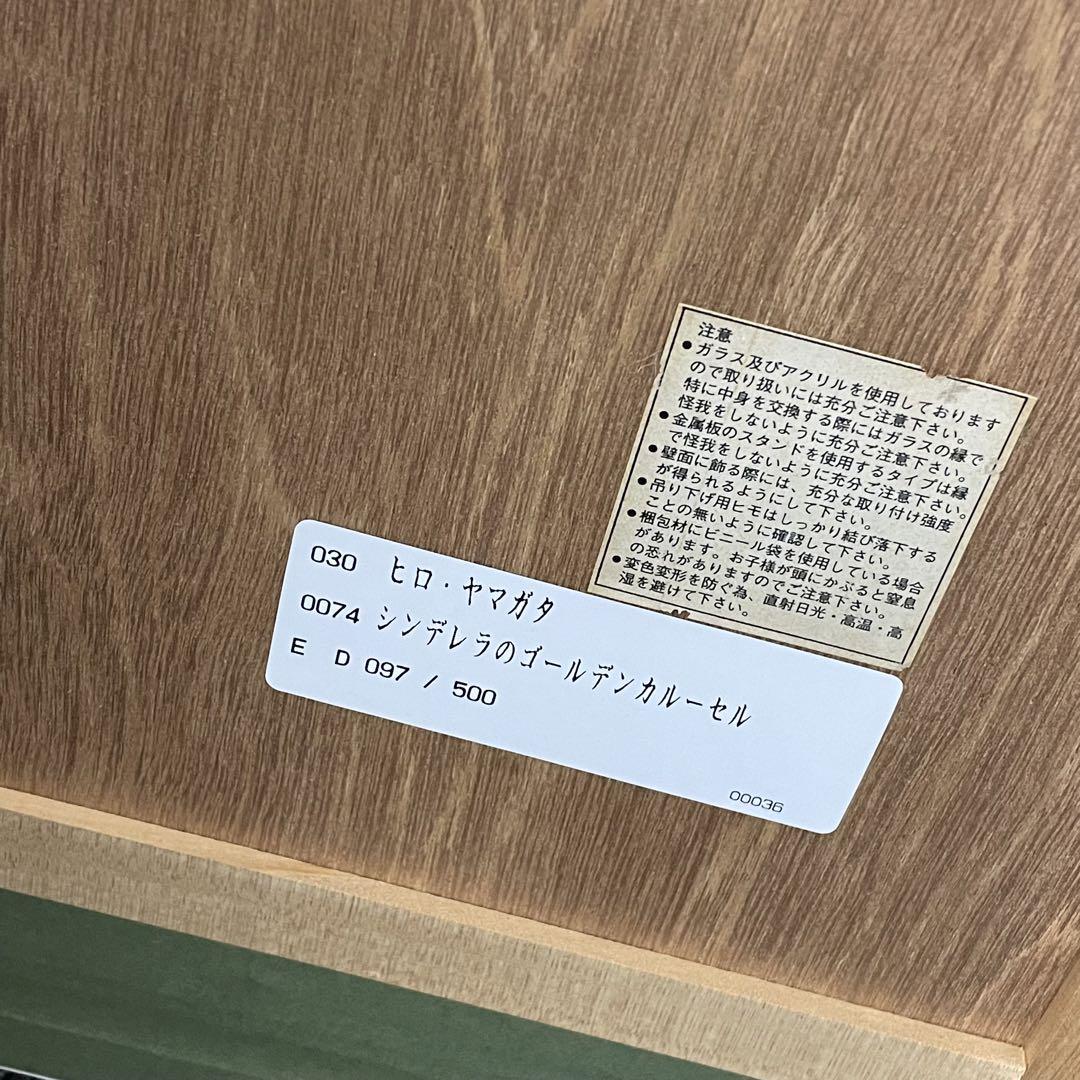 注意
●ガラス及びアクリルを使用しております
ので取り扱いには充分ご注意下さい。
特に中身を交換する際にはガラスの縁で
怪我をしないように充分ご注意下さい。
●金属板のスタンドを使用するタイプは縁
で怪我をしないように充分ご注意下さい。
●壁面に飾る際には、充分な取り付け強度
が得られるようにして下さい。
●吊り下げ用ヒモはしっかり結び落下する
ことの無いように確認して下さい。
●梱包材にビニール袋を使用している場合
があります。お子様が頭にかぶると窒息
の恐れがありますのでご注意下さい。
●変色変形を防ぐ為、直射日光・高温・高
湿を避けて下さい。
030 ヒロ・ヤマガタ
0074 シンデレラのゴールデンカルーセル
E D 097 / 500
00036